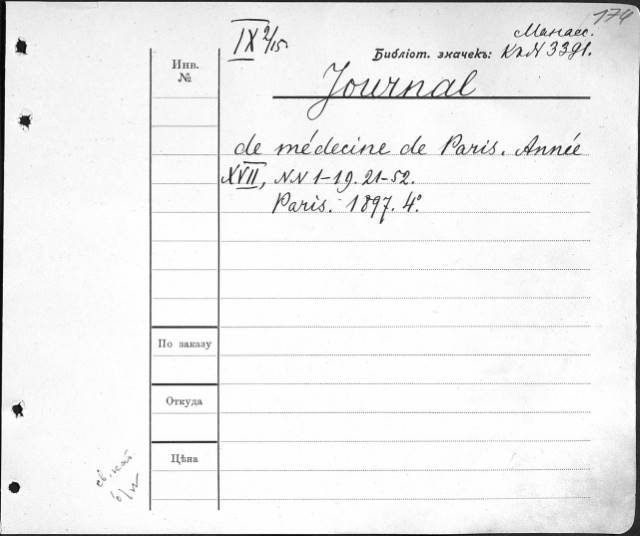 174
IX 2/15.
Манасс.
Библіот. значекъ: КкN 3391.
Инв.
№
Journal
de médecine de Paris. Année
XVII, NN 1-19. 21-52.
Paris. 1897. 4°
По заказу
Откуда
Цѣна